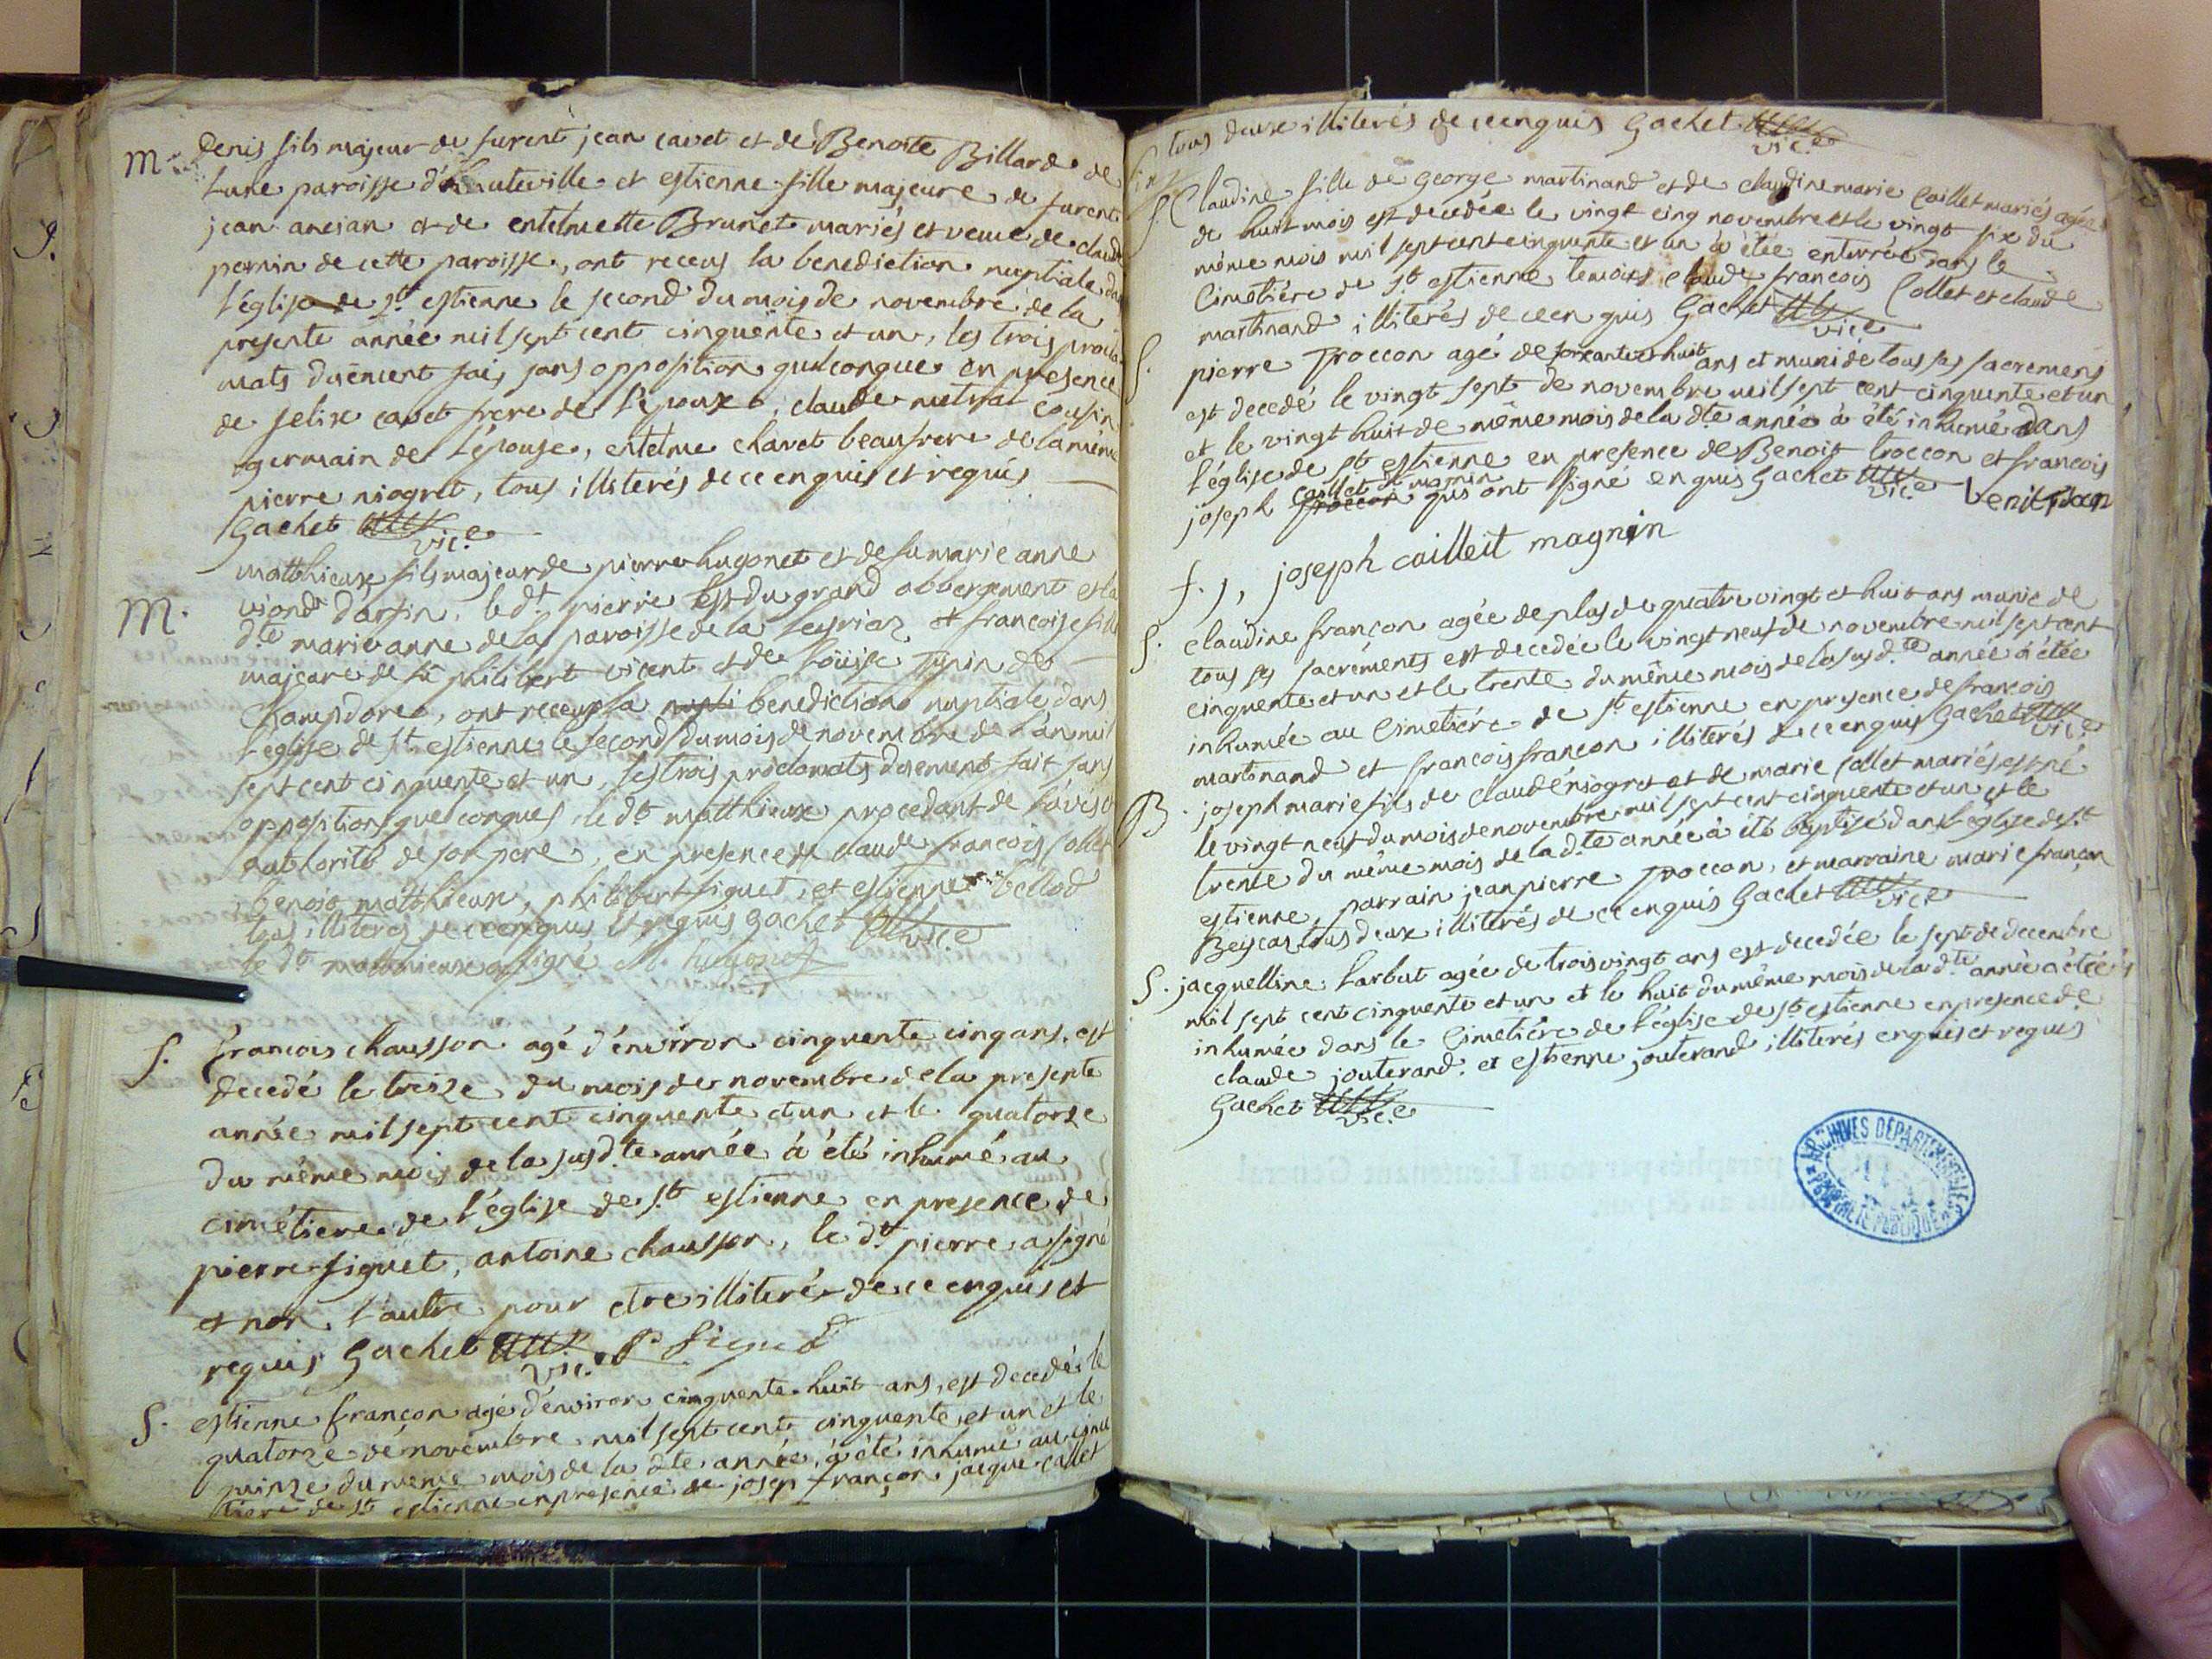 M. Denis fils majeur de furent jean cavet et de Benoite Billard de
Lune paroisse d'hauteville et estienne fille majeure de furent
jean ancian et de entelmette Brunet mariés et veuve de claude
pernin de cette paroisse, ont receus la benediction nuptiale dans
l'église de St. estienne le second du mois de novembre de la
presente année mil sept cent cinquente et un, les trois procla
mats duëment fais, sans opposition quelconque en presence
de felix cavet frere de l'époux, claude mutral cousin
germain de l'épouse, entelme charvet beaufrere de la même
pierre niogret, tous illiterés de ce enquis et requis
Gachet vic.e
M. matthieux fils majeur de pierre hugonet et de fu marie anne
viond darfin, le dt. pierre est du grand abbergement et la
dte marie anne de la paroisse de la leyriaz et francoise fille
majeure de fû philibert vicent et de Loüise Tupin de
Champdore, ont receus la nupti benediction nuptiale dans
l'église de St. estienne le second du mois de novembre de l'an mil
sept cent cinquente et un, les trois proclamats duement fait sans
oppositions quelconques, le dt. matthieux procedant de l'avis et
authorité de son pere, en presence de claude francois Collet
benoit matthieux, philibert figuet, et estienne bellod
tous illiteres de ce enquis et requis Gachet vic.e
le dt matthieux a signé M. hugonet
S. francois chausson agé d'énvirron cinquente cinq ans, est
decedé le treize du mois de novembre de la presente
année mil sept cent cinquente et un et le quatorze
du même mois de la susd.te année à été inhumé au
cimétiere de l'église de St. estienne en presence de
pierre figuet, antoine chausson, le dt. pierre a signé
et non l'autre pour etre illiteré de ce enquis et
requis Gachet vic.e P figuet
S. estienne françon agé d'énviron cinquente huit ans, est decedé le
quatorze de novembre mil sept cent cinquente et un et le
quinze du meme mois de la dte. année, à été inhumé au cime
tiere de St estienne en presence de josep françon jacque callet
tous deux illiterés de ce enquis Gachet vic.e
S. Claudine fille de George martinand et de claudine marie Caillet mariés agée
de huit mois est decedée le vingt cinq novembre et le vingt six du
même mois mil sept cent cinquente et un à étée enterrée dans le
Cimetiére de St. estienne temoins claude francois Collet et claude
martinand illiterés de ce enquis Gachet vic.e
S. pierre Troccon agé de soixante et huit ans et muni de tous ses sacremens
est decedé le vingt sept de novembre mil sept cent cinquente et un
et le vingt huit de même mois de la dte année à été inhumé dans
l'église de St. estienne en presence de Benoit troccon et francois
joseph troccon Caillet et magnin qui ont signé enquis Gachet vic.e
f. j, joseph cailleit magnin
S. claudine françon agée de plus de quatre vingt et huit ans munie de
tous ses sacréments est decedée le vingt neuf de novembre mil sept cent
cinquente et un et le trente du même mois de la susd.te année à étée
inhumée au Cimetiére de St estienne en presence de francois
martinand et francois françon illiterés de ce enquis Gachet vic.e
B. joseph marie fils de claude niogret et de marie Collet mariés est né
le vingt neuf du mois de novembre mil sept cent cinquente et un et le
trente du même mois de la d.te année à été baptisé dans l'église de St
estienne, parrain jean pierre Troccon, et marraine marie françon
Beycaz tous deux illiterés de ce enquis Gachet vic.e
S. jacquelline harbut agée de trois vingt ans est decedée le sept de decembre
mil sept cent cinquente et un et le huit du même mois de la dte année à étée
inhumée dans le Cimetiére de l'église de St estienne en presence de
claude jouterand et estienne jouterand illiterés enquis et requis
Gachet vic.e
ARCHIVES DÉPARTEMENTALES
PROPRIÉTÉ PUBLIQUE